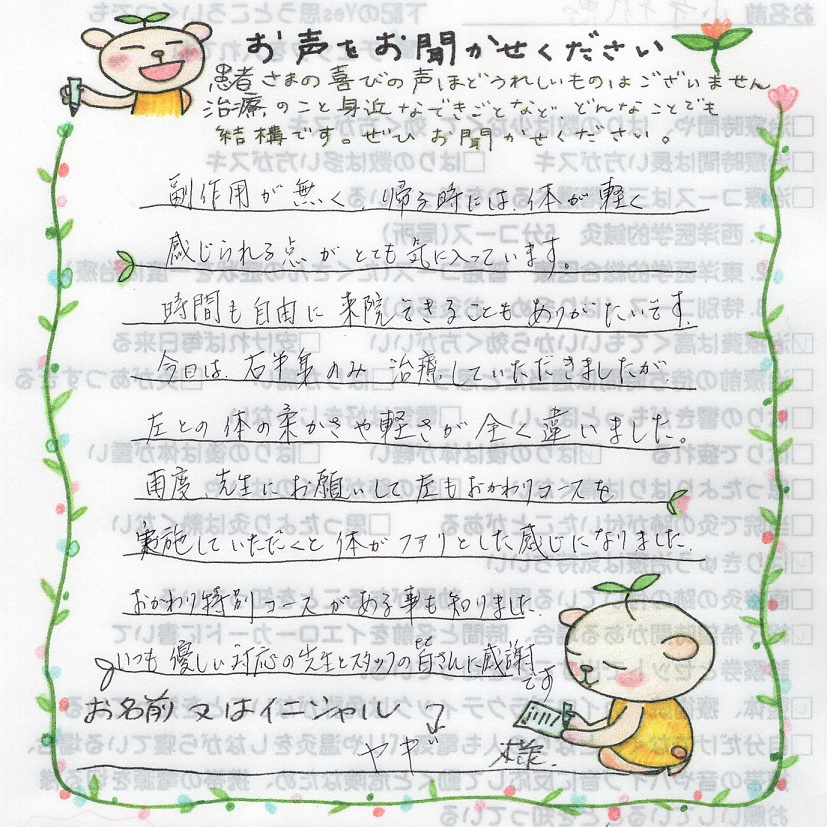 お声をお聞かせください
患者さまの喜びの声ほどうれしいものはございません
治療のこと身近なできごとなど どんなことでも
結構です。ぜひ お聞かせください。
副作用が無く、帰る時には、体が軽く
感じられる点がとても気に入っています。
時間も自由に来院できることもありがたいです。
今日は、右半身のみ治療していただきましたが、
左との体の柔かさや軽さが全く違いました。
再度、先生にお願いして左もおかわりコースを
実施していただくと体がフワリとした感じになりました。
おかわり特別コースがある事も知りました。
いつも優しい対応の先生とスタッフの皆さんに感謝
です
お名前又はイニシャル
ヤギ 様